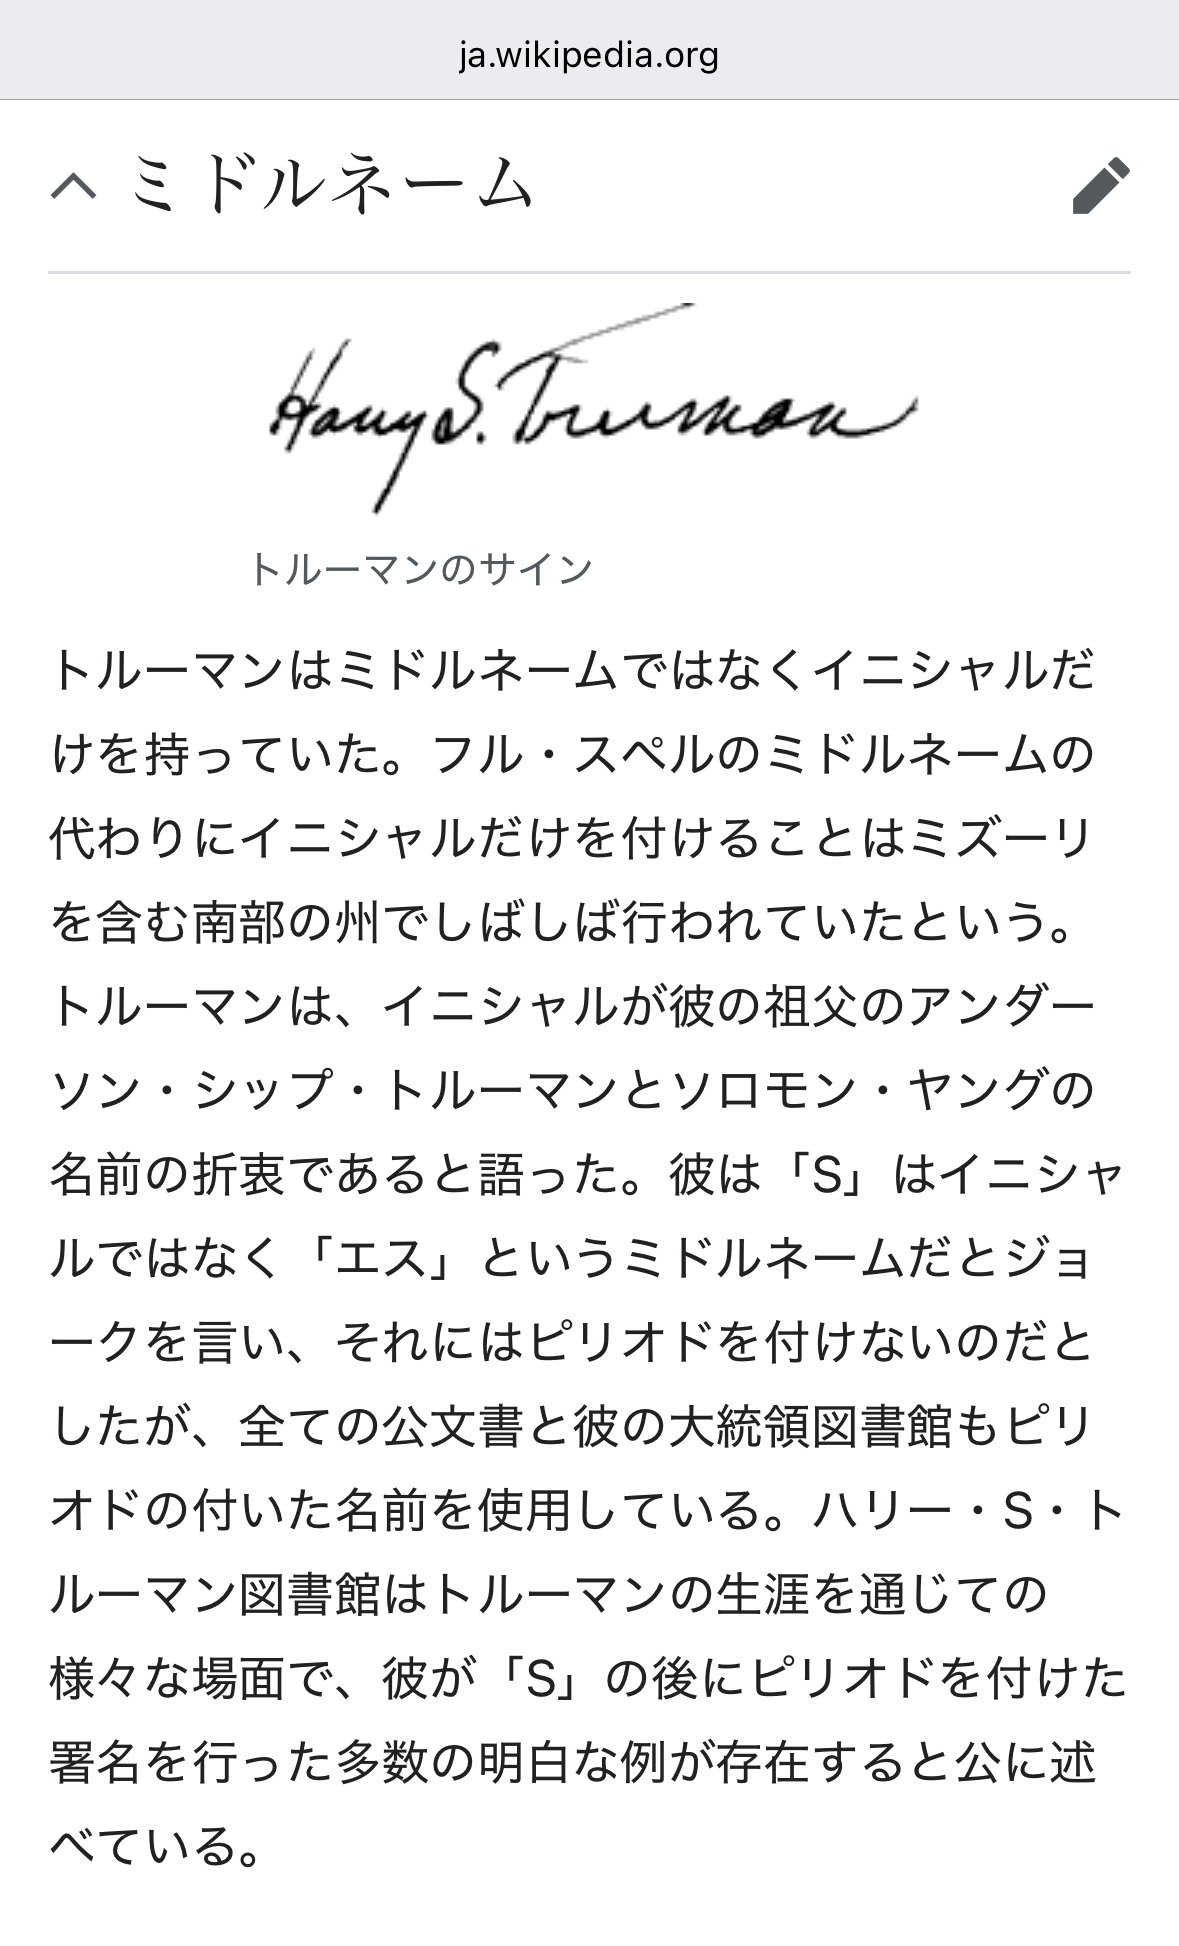 ja.wikipedia.org
ミドルネーム
Harry S. Truman
トルーマンのサイン
トルーマンはミドルネームではなくイニシャルだ
けを持っていた。フル・スペルのミドルネームの
代わりにイニシャルだけを付けることはミズーリ
を含む南部の州でしばしば行われていたという。
トルーマンは、イニシャルが彼の祖父のアンダー
ソン・シップ・トルーマンとソロモン・ヤングの
名前の折衷であると語った。彼は「S」はイニシャ
ルではなく「エス」というミドルネームだとジョ
ークを言い、それにはピリオドを付けないのだと
したが、全ての公文書と彼の大統領図書館もピリ
オドの付いた名前を使用している。ハリー・S・ト
ルーマン図書館はトルーマンの生涯を通じての
様々な場面で、彼が「S」の後にピリオドを付けた
署名を行った多数の明白な例が存在すると公に述
べている。